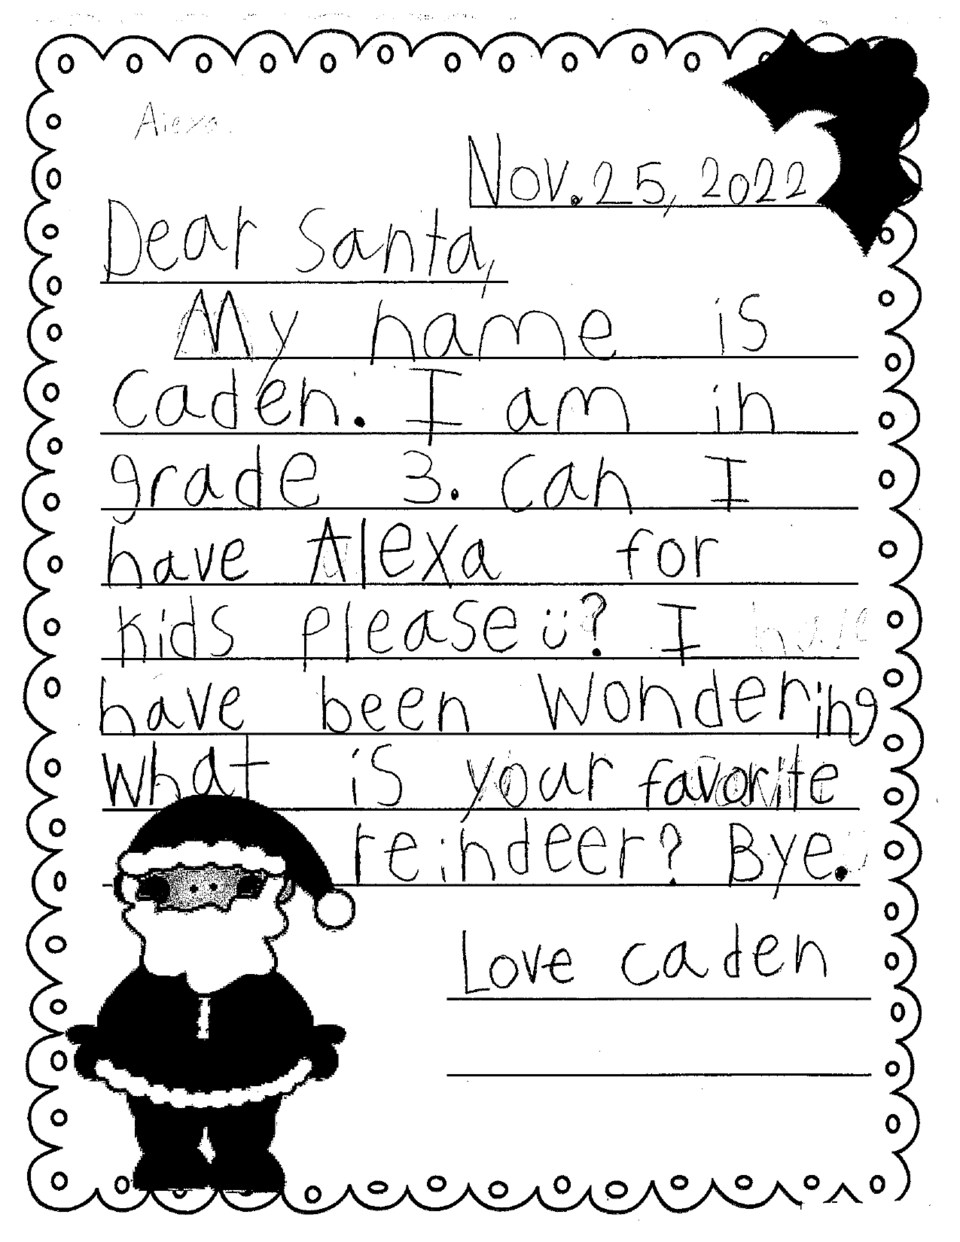 Alexa
Nov. 25, 2022
Dear Santa,
My name is
Caden. I am in
grade 3. Can I
have Alexa for
kids please ü? I have
have been wondering
what is your favorite
reindeer? Bye.
Love Caden